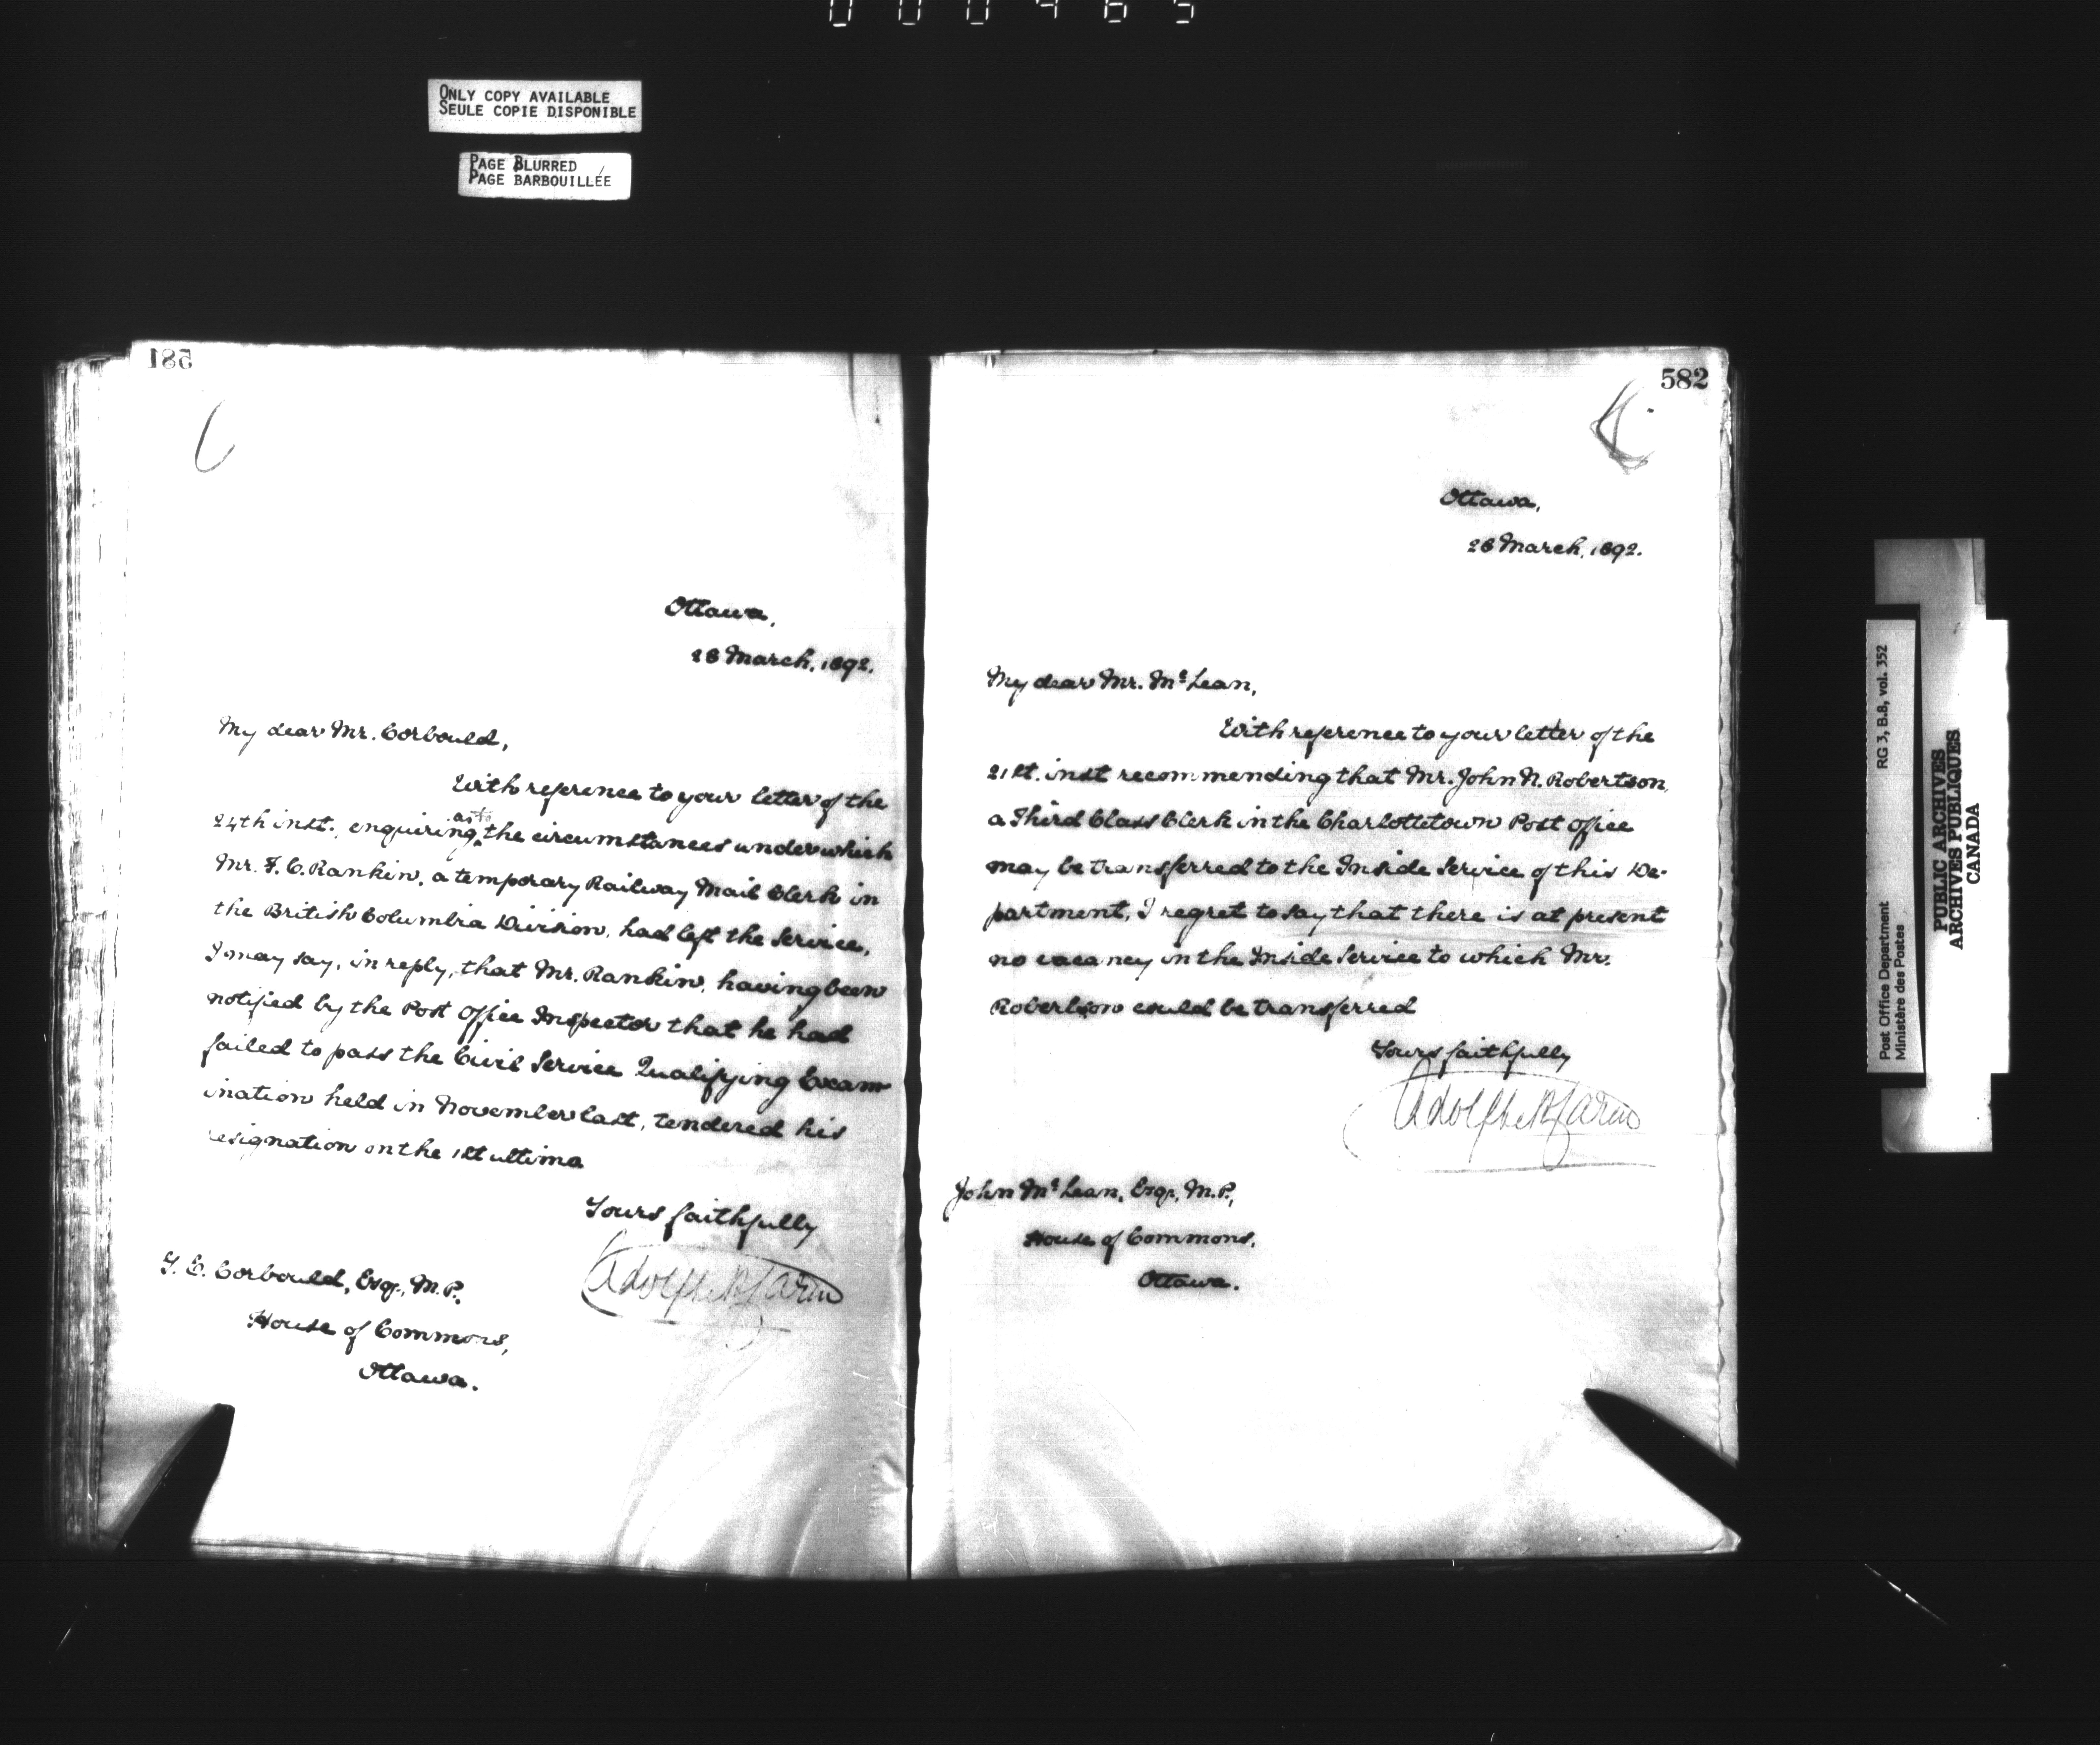 000465
ONLY COPY AVAILABLE
SEULE COPIE DISPONIBLE
PAGE BLURRED
PAGE BARBOUILLÉE
581
Ottawa,
28 March, 1892.
My dear Mr. Corbould,
With reference to your letter of the
24th inst., enquiring as to the circumstances under which
Mr. F. C. Rankin, a temporary Railway Mail Clerk in
the British Columbia Division, had left the Service,
I may say, in reply, that Mr. Rankin, having been
notified by the Post Office Inspector that he had
failed to pass the Civil Service Qualifying Exam-
ination held in November last, tendered his
resignation on the 1st ultimo
Yours faithfully
Adolphe P. Caron
G. E. Corbould, Esq., M.P.,
House of Commons,
Ottawa.
582
Ottawa,
28 March, 1892.
My dear Mr. McLean,
With reference to your letter of the
21st. inst recommending that Mr. John N. Robertson,
a Third Class Clerk in the Charlottetown Post Office
may be transferred to the Inside Service of this De-
partment, I regret to say that there is at present
no vacancy in the Inside Service to which Mr.
Robertson could be transferred
Yours faithfully
Adolphe P. Caron
John McLean, Esq., M.P.,
House of Commons,
Ottawa.
Post Office Department RG 3, B.8, vol. 352
Ministère des Postes
PUBLIC ARCHIVES
ARCHIVES PUBLIQUES
CANADA